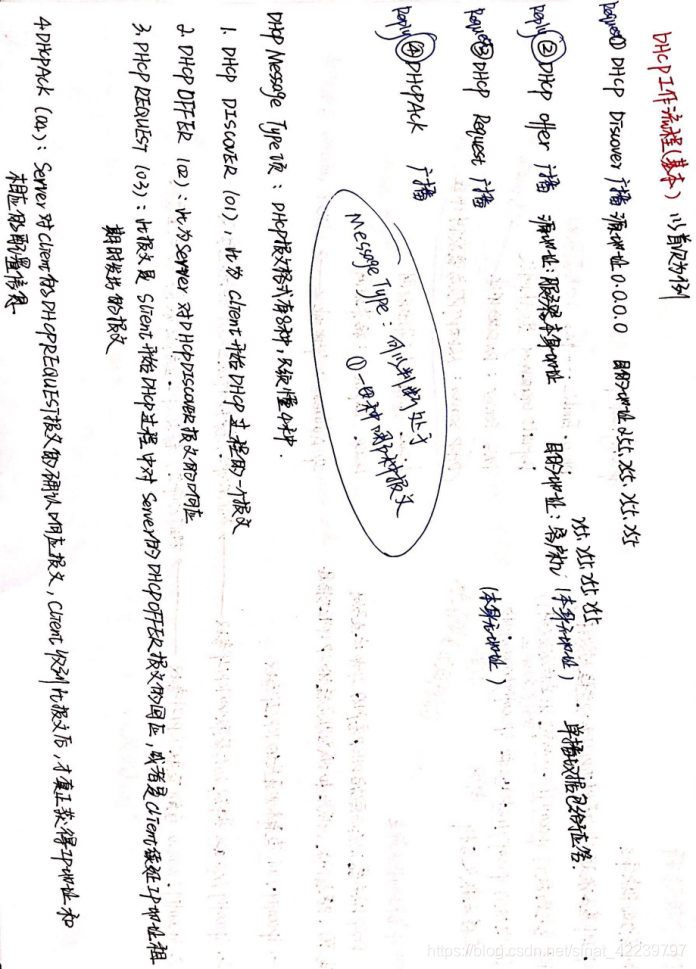 DHCP工作流程(基本) 以首次为例
Request① DHCP Discover 广播 源地址 0.0.0.0 目的地址 255.255.255.255
Reply② DHCP offer 广播 源地址:服务器本身地址 目的地址:客户机(本身无地址) 单播数据包给对应答.
255.255.255.255
Request③ DHCP Request 广播
(本身无地址)
Reply④ DHCPAck 广播
Message Type:可以判断处于
①-④种哪种报文
DHCP Message Type项:DHCP报文格式有8种,只须懂4种.
1. DHCP DISCOVER (01),此为 Client开始DHCP过程的一个报文
2. DHCP OFFER (02):此为Server 对DHCPDISCOVER报文的响应
3. DHCP REQUEST (03):此报文是 Slient开始DHCP过程中对 Server的DHCPOFFER报文的回应,或者是Client续延IP地址租
期时发出的报文
4.DHCPAck (04):Server对Client的DHCPREQUEST报文的确认响应报文,Client收到此报文后,才真正获得IP地址和
相应的配置信息
https://blog.csdn.net/sinat_42239797